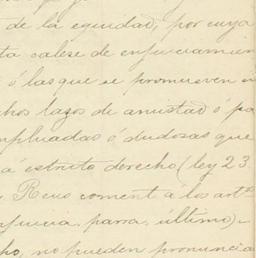 de la equidad, por cuya
ta calese de enjuiciamien
ó las que se promueven en
chos lazos de amistad ó pa
mpliadas ó dudosas que
á estricto derecho (ley 23
Reus coment á los artº
njuicia. parra. último) -
ho, no pueden pronuncia